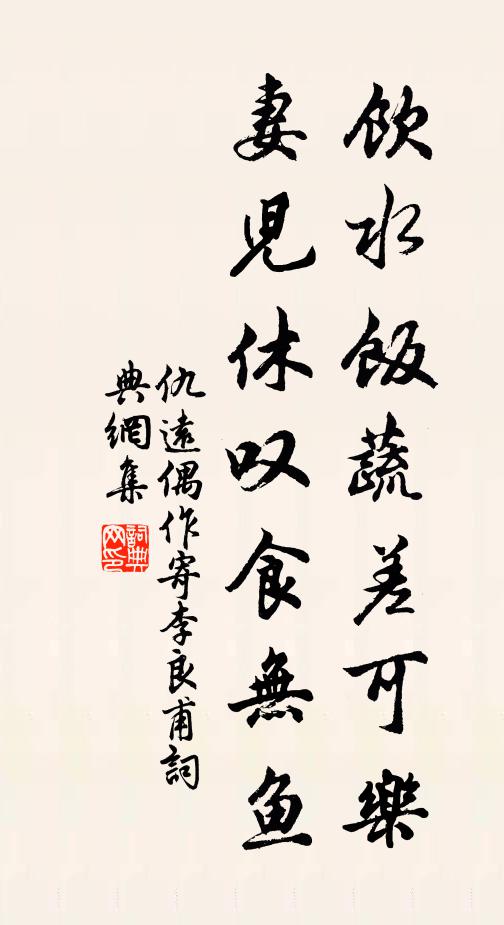 飲水飯蔬差可樂
妻児休叹食無魚
仇遠偶作寄李良甫詞
典網集
詞典
网印